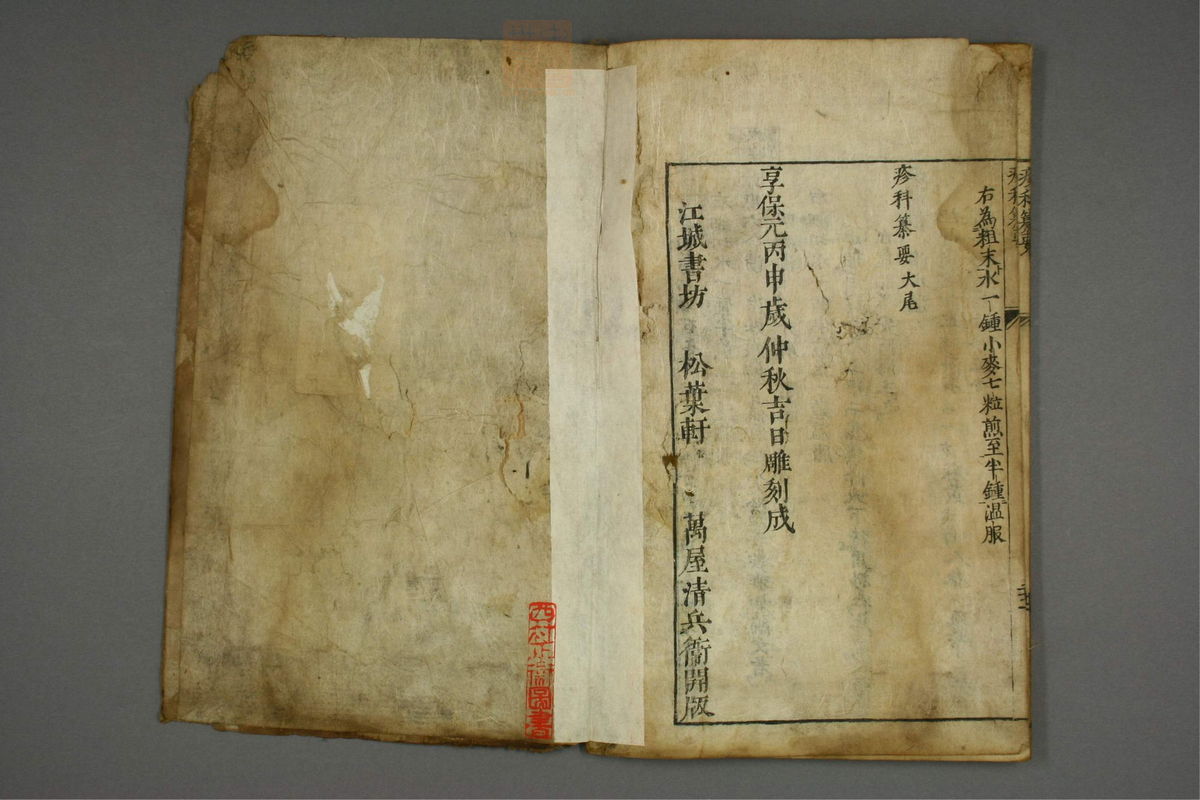 疹科纂要
右為粗末水一鍾小麥七粒煎至半鍾温服
疹科纂要大尾
享保元丙申歳仲秋吉日雕刻成
江城書坊 松葉軒 萬屋清兵衞開版